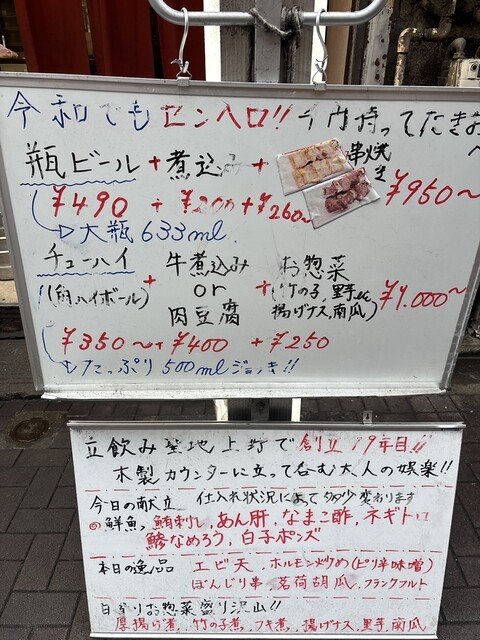 令和でもセンベロ!! 千円持ってたきお
瓶ビール + 煮込み + 串焼き ¥950~
¥490 + ¥200 + ¥260~
大瓶 633ml.
チューハイ + 牛煮込み + お惣菜 ¥1.000~
(角ハイボール) or (竹の子、里芋etc
肉豆腐 揚げナス、南瓜)
¥350~ + ¥400 + ¥250
たっぷり500mlジョッキ!!
立飲み聖地上野で創立19年目!!
木製カウンターに立って呑む大人の娯楽!!
今日の献立 仕入れ状況によって多少変わります
◎鮮魚 鮪刺し、あん肝、なまこ酢、ネギトロ
鯵なめろう、白子ポンズ
本日の逸品 エビ天、ホルモン炒め(ピリ辛味噌)
ぼんじり串、茗荷胡瓜、フランクフルト
日替りお惣菜盛り沢山!!
厚揚げ煮、竹の子煮、フキ煮、揚げナス、里芋、南瓜